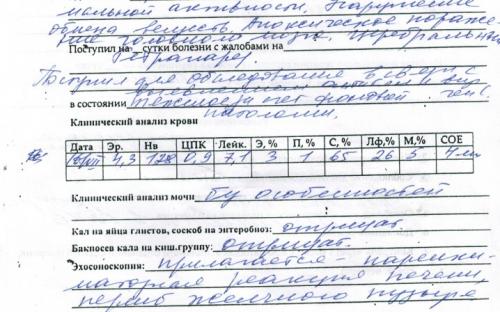 мальной активности. Нарушение
обмена веществ. Аноксическое пораже-
ние головного мозга.
Поступил на _ сутки болезни с жалобами на
тетрапарез.
Поступил для обследования в связи с
в состоянии тяжелое за счет фоновой
патологии.
Клинический анализ крови
Дата Эр. Нв ЦПК Лейк. Э, % П, % С, % Лф,% М,% СОЕ
4,3 128 0,9 7,1 3 1 65 26 5 4 мм
Клинический анализ мочи б/у особенностей
Кал на яйца глистов, соскоб на энтеробиоз: отрицат.
Бакпосев кала на киш.группу: отрицат.
Эхосоноскопия: прилагается - паренхи-
матозная реакция печени,
перегиб желчного пузыря